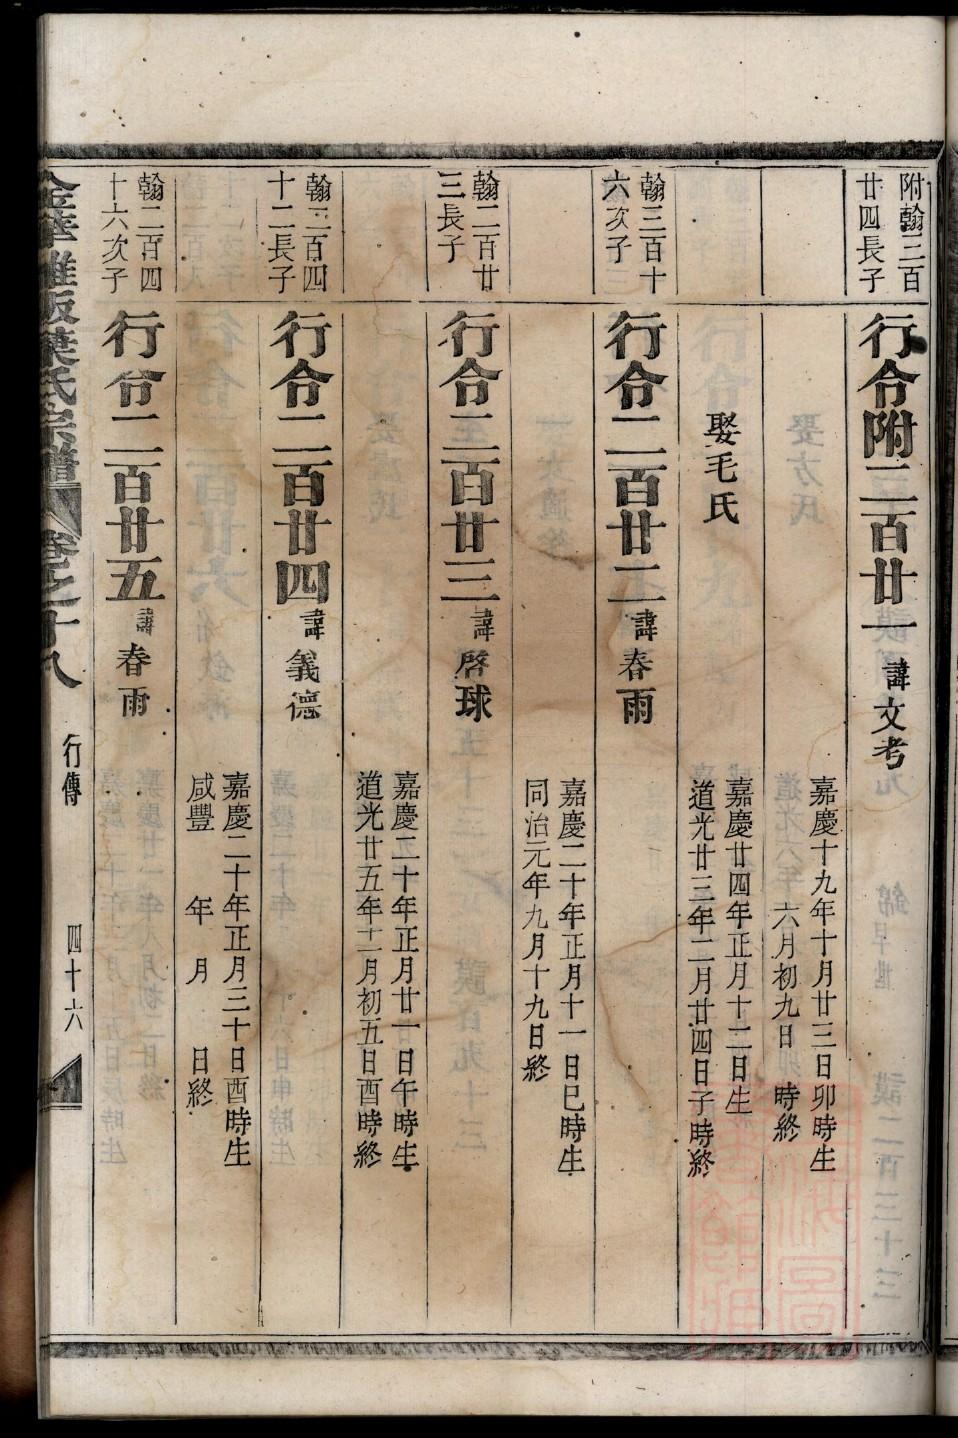 附翰三百
廿四長子
行令附二百廿一 諱文考
嘉慶十九年十月廿三日卯時生
六月初九日 時終
娶毛氏
嘉慶廿四年正月十二日生
道光廿三年二月廿四日子時終
翰三百十
六次子
行令二百廿二 諱春雨
嘉慶二十年正月十一日巳時生
同治元年九月十九日終
翰二百廿
三長子
行令二百廿三 諱啓球
嘉慶二十年正月廿一日午時生
道光廿五年十二月初五日酉時終
翰二百四
十二長子
行令二百廿四 諱義德
嘉慶二十年正月三十日酉時生
咸豐 年 月 日終
翰二百四
十六次子
行令二百廿五 諱春雨
金華 阪葉氏宗譜 卷之十八 行傳 四十六